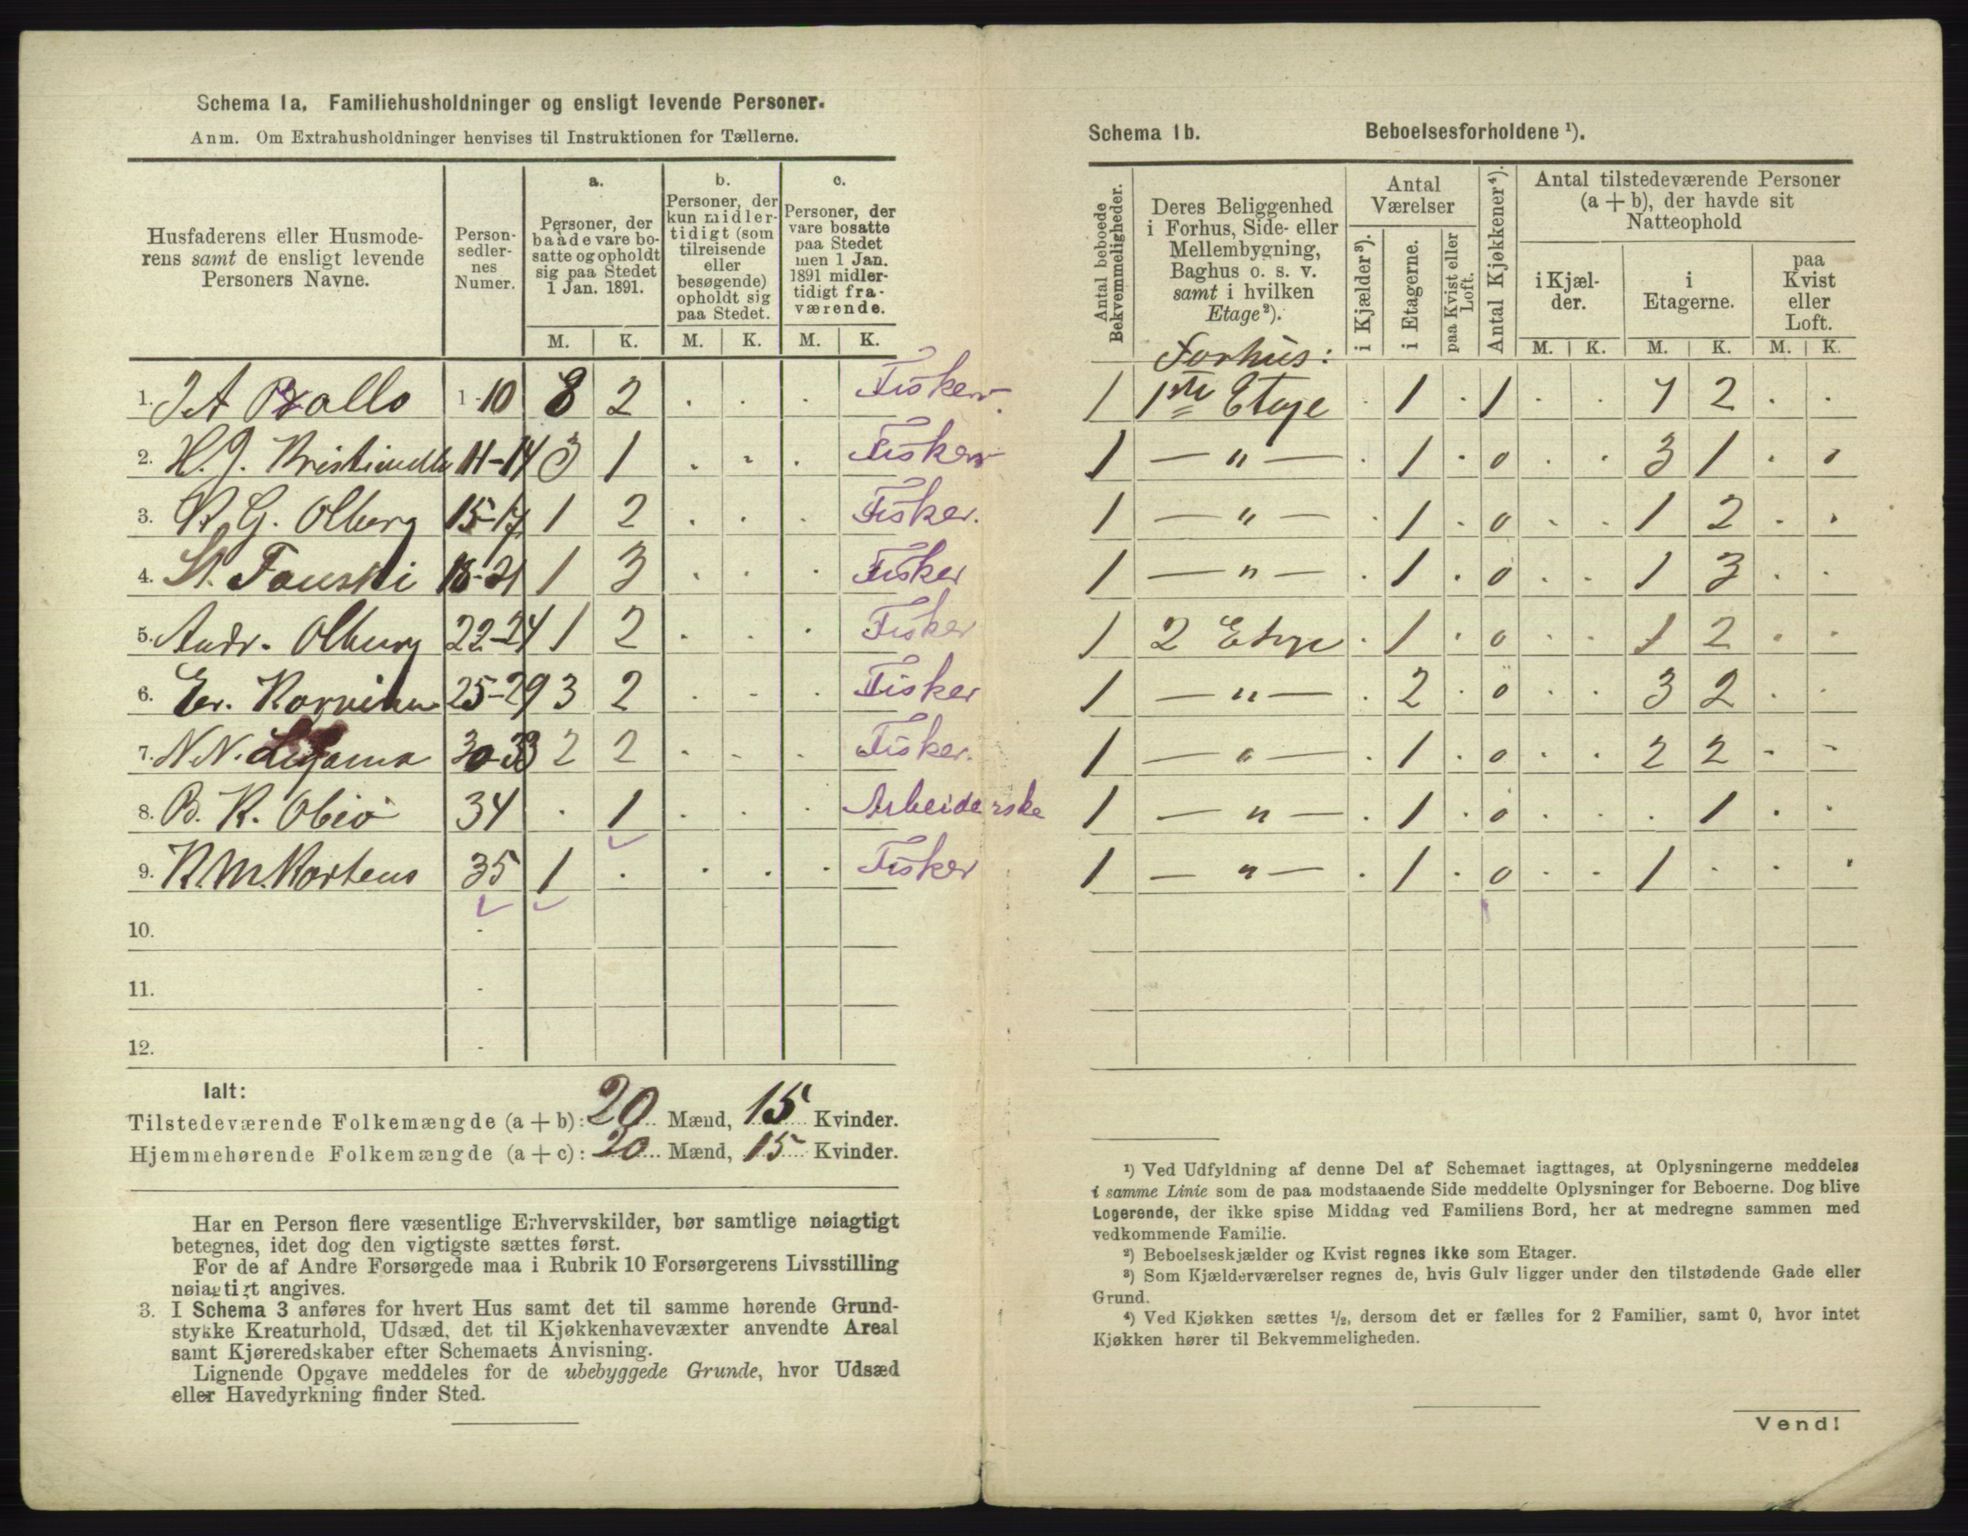 Schema 1a. Familiehusholdninger og ensligt levende Personer.
Anm. Om Extrahusholdninger henvises til Instruktionen for Tællerne.
Husfaderens eller Husmoderens samt de ensligt levende Personers Navne.
Person-sedler-nes Numer.
a.
Personer, der baade vare bosatte og opholdt sig paa Stedet 1 Jan. 1891.
b.
Personer, der kun midlertidigt (som tilreisende eller besøgende) opholdt sig paa Stedet.
c.
Personer, der vare bosatte paa Stedet men 1 Jan. 1891 midlertidigt fraværende.
M. K. M. K. M. K.
1. J A 1-10 8 2 . . . Fisker
2. H. J. 11-14 3 1 . . . Fisker
3. G. Olberg 15-17 1 2 . . . Fisker.
4. Fauski 18-21 1 3 . . . Fisker
5. Andr. Olberg 22-24 1 2 . . . Fisker
6. Er. 25-29 3 2 . . . Fisker
7. N N. 30-33 2 2 . . . Fisker.
8. B. K. 34 . 1 . . . Arbeiderske
9. K. M. Kortens 35 1 . . . . Fisker
10. -
11. -
12. -
Ialt:
Tilstedeværende Folkemængde (a + b): 20 Mænd, 15 Kvinder.
Hjemmehørende Folkemængde (a + c): 20 Mænd, 15 Kvinder.
Har en Person flere væsentlige Erhvervskilder, bør samtlige nøiagtigt
betegnes, idet dog den vigtigste sættes først.
For de af Andre Forsørgede maa i Rubrik 10 Forsørgerens Livsstilling
nøiagtigt angives.
3. I Schema 3 anføres for hvert Hus samt det til samme hørende Grund-
stykke Kreaturhold, Udsæd, det til Kjøkkenhavevæxter anvendte Areal
samt Kjøreredskaber efter Schemaets Anvisning.
Lignende Opgave meddeles for de ubebyggede Grunde, hvor Udsæd
eller Havedyrkning finder Sted.
Schema 1b. Beboelsesforholdene ¹).
Antal beboede Bekvemmeligheder.
Deres Beliggenhed i Forhus, Side- eller Mellembygning, Baghus o. s. v. samt i hvilken Etage²).
Antal Værelser
i Kjælder³).
i Etagerne.
paa Kvist eller Loft.
Antal Kjøkkener⁴).
Antal tilstedeværende Personer (a + b), der havde sit Natteophold
i Kjælder.
i Etagerne.
paa Kvist eller Loft.
M. K. M. K. M. K.
Forhus:
1 1ste Etage . 1 . 1 . . 7 2 . .
1 — " — . 1 . 0 . . 3 1 . .
1 — " — . 1 . 0 . . 1 2 . .
1 — " — . 1 . 0 . . 1 3 . .
1 2 Etage . 1 . 0 . . 1 2 . .
1 — " — . 2 . 0 . . 3 2 . .
1 — " — . 1 . 0 . . 2 2 . .
1 — " — . 1 . 0 . . . 1 . .
1 — " — . 1 . 0 . . 1 . . .
¹) Ved Udfyldning af denne Del af Schemaet iagttages, at Oplysningerne meddeles
i samme Linie som de paa modstaaende Side meddelte Oplysninger for Beboerne. Dog blive
Logerende, der ikke spise Middag ved Familiens Bord, her at medregne sammen med
vedkommende Familie.
²) Beboelseskjælder og Kvist regnes ikke som Etager.
³) Som Kjælderværelser regnes de, hvis Gulv ligger under den tilstødende Gade eller
Grund.
⁴) Ved Kjøkken sættes ½, dersom det er fælles for 2 Familier, samt 0, hvor intet
Kjøkken hører til Bekvemmeligheden.
Vend!